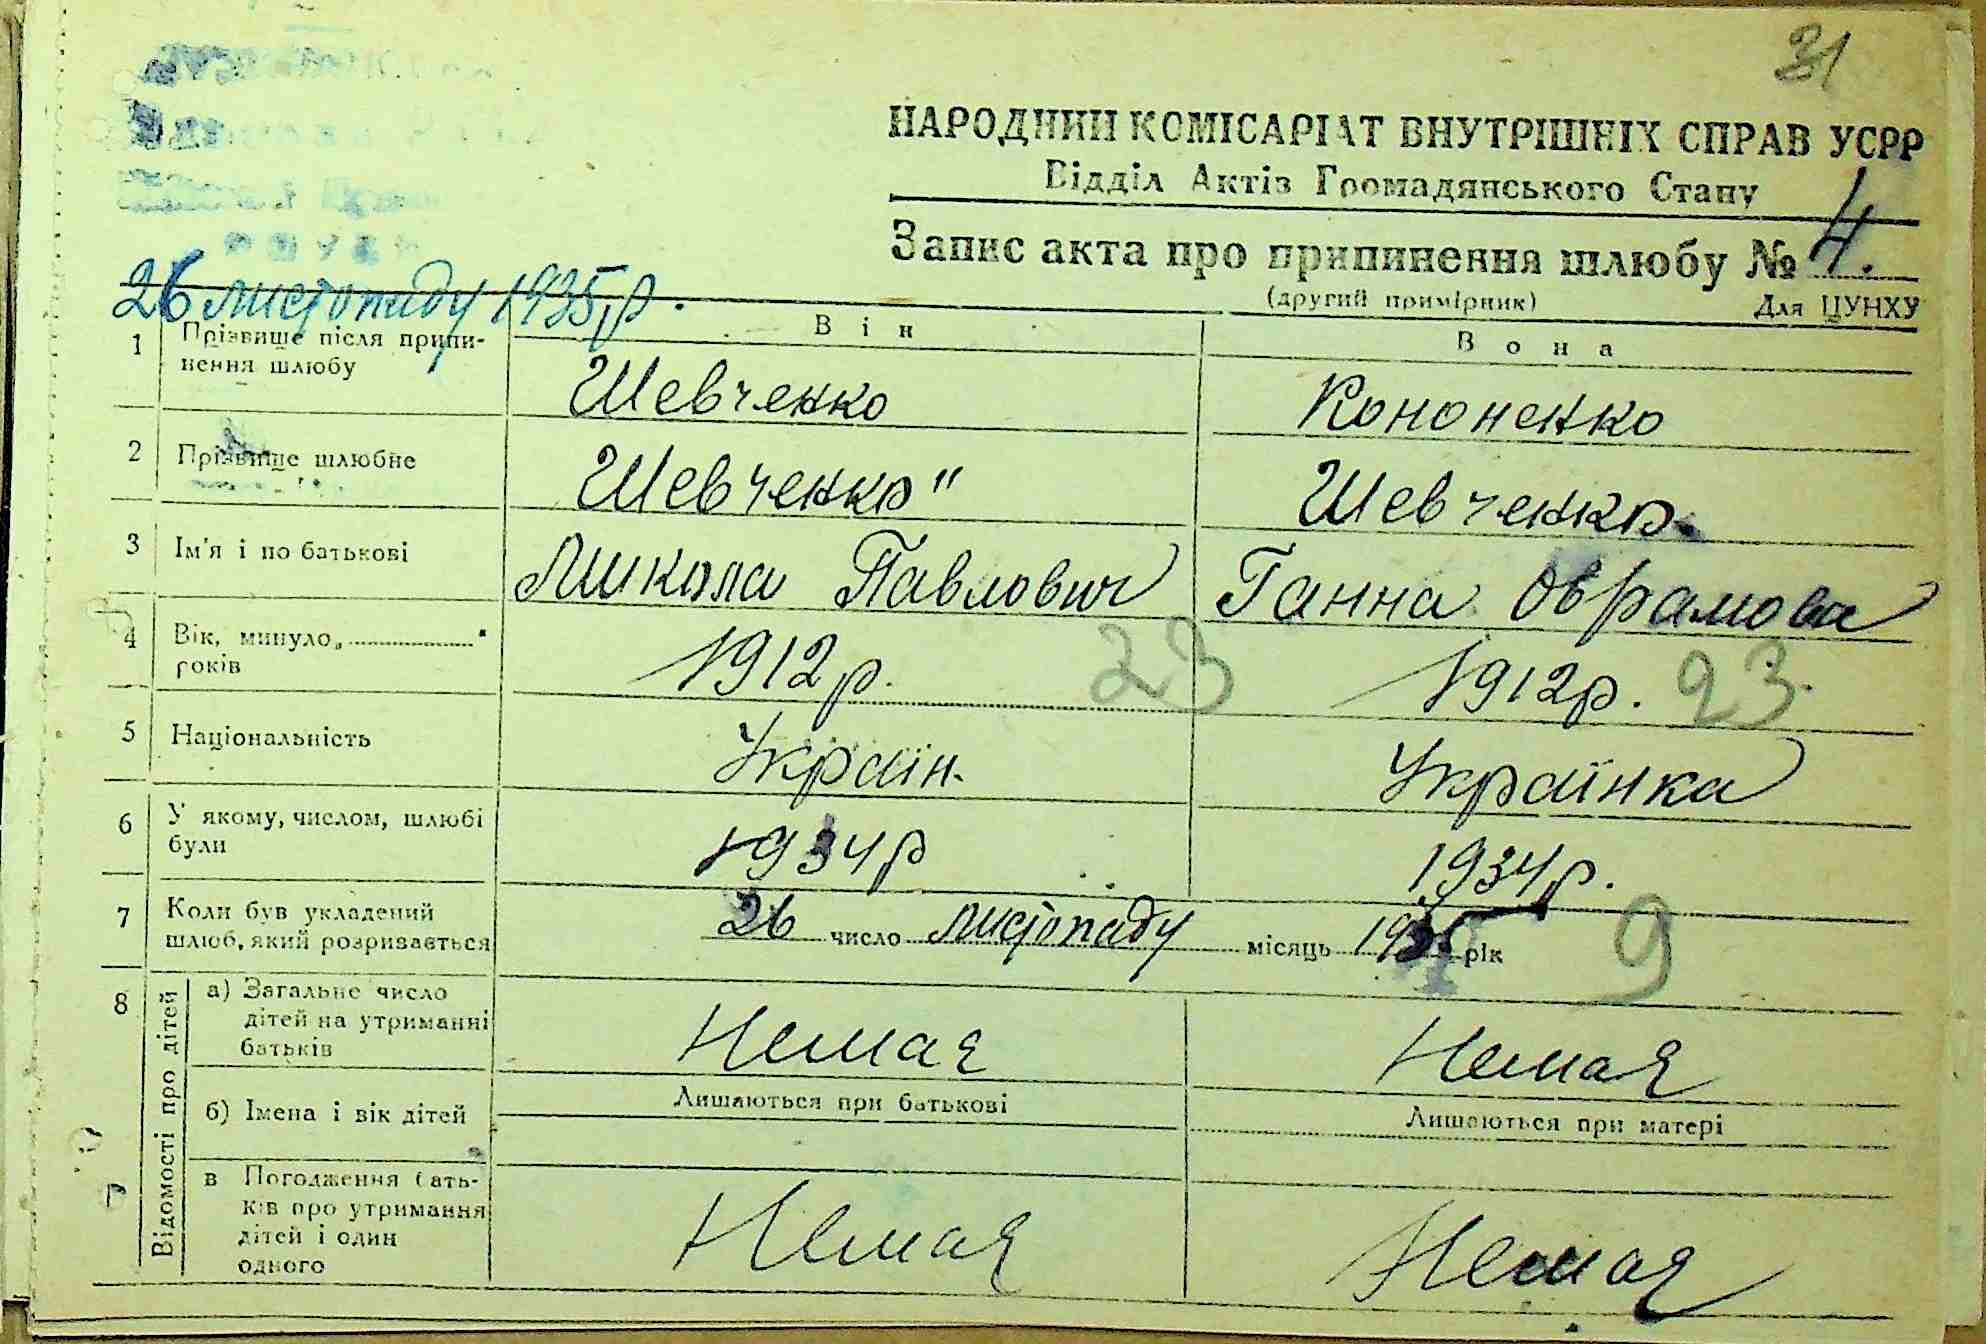 31
НАРОДНИЙ КОМІСАРІАТ ВНУТРІШНІХ СПРАВ УСРР
Відділ Актів Громадянського Стану
Запис акта про припинення шлюбу № 4.
(другий примірник) Для ЦУНХУ
26 листопаду 1935 р.
Він Вона
1 Прізвище після припи-
нення шлюбу
Шевченко Кононенко
2 Прізвище шлюбне Шевченко" Шевченко
3 Ім'я і по батькові Микола Павлович Ганна Оврамовна
4 Вік, минуло
років
1912 р. 23 1912 р. 23
5 Національність Україн. Українка
6 У якому, числом, шлюбі
були
1934 р 1934 р.
7 Коли був укладений
шлюб, який розривається
26 число листопаду місяць рік 9
8 Відомості про дітей
а) Загальне число
дітей на утриманні
батьків
Немає Немає
б) Імена і вік дітей Лишаються при батькові Лишаються при матері
в Погодження бать-
ків про утримання
дітей і один
одного
Немає Немає